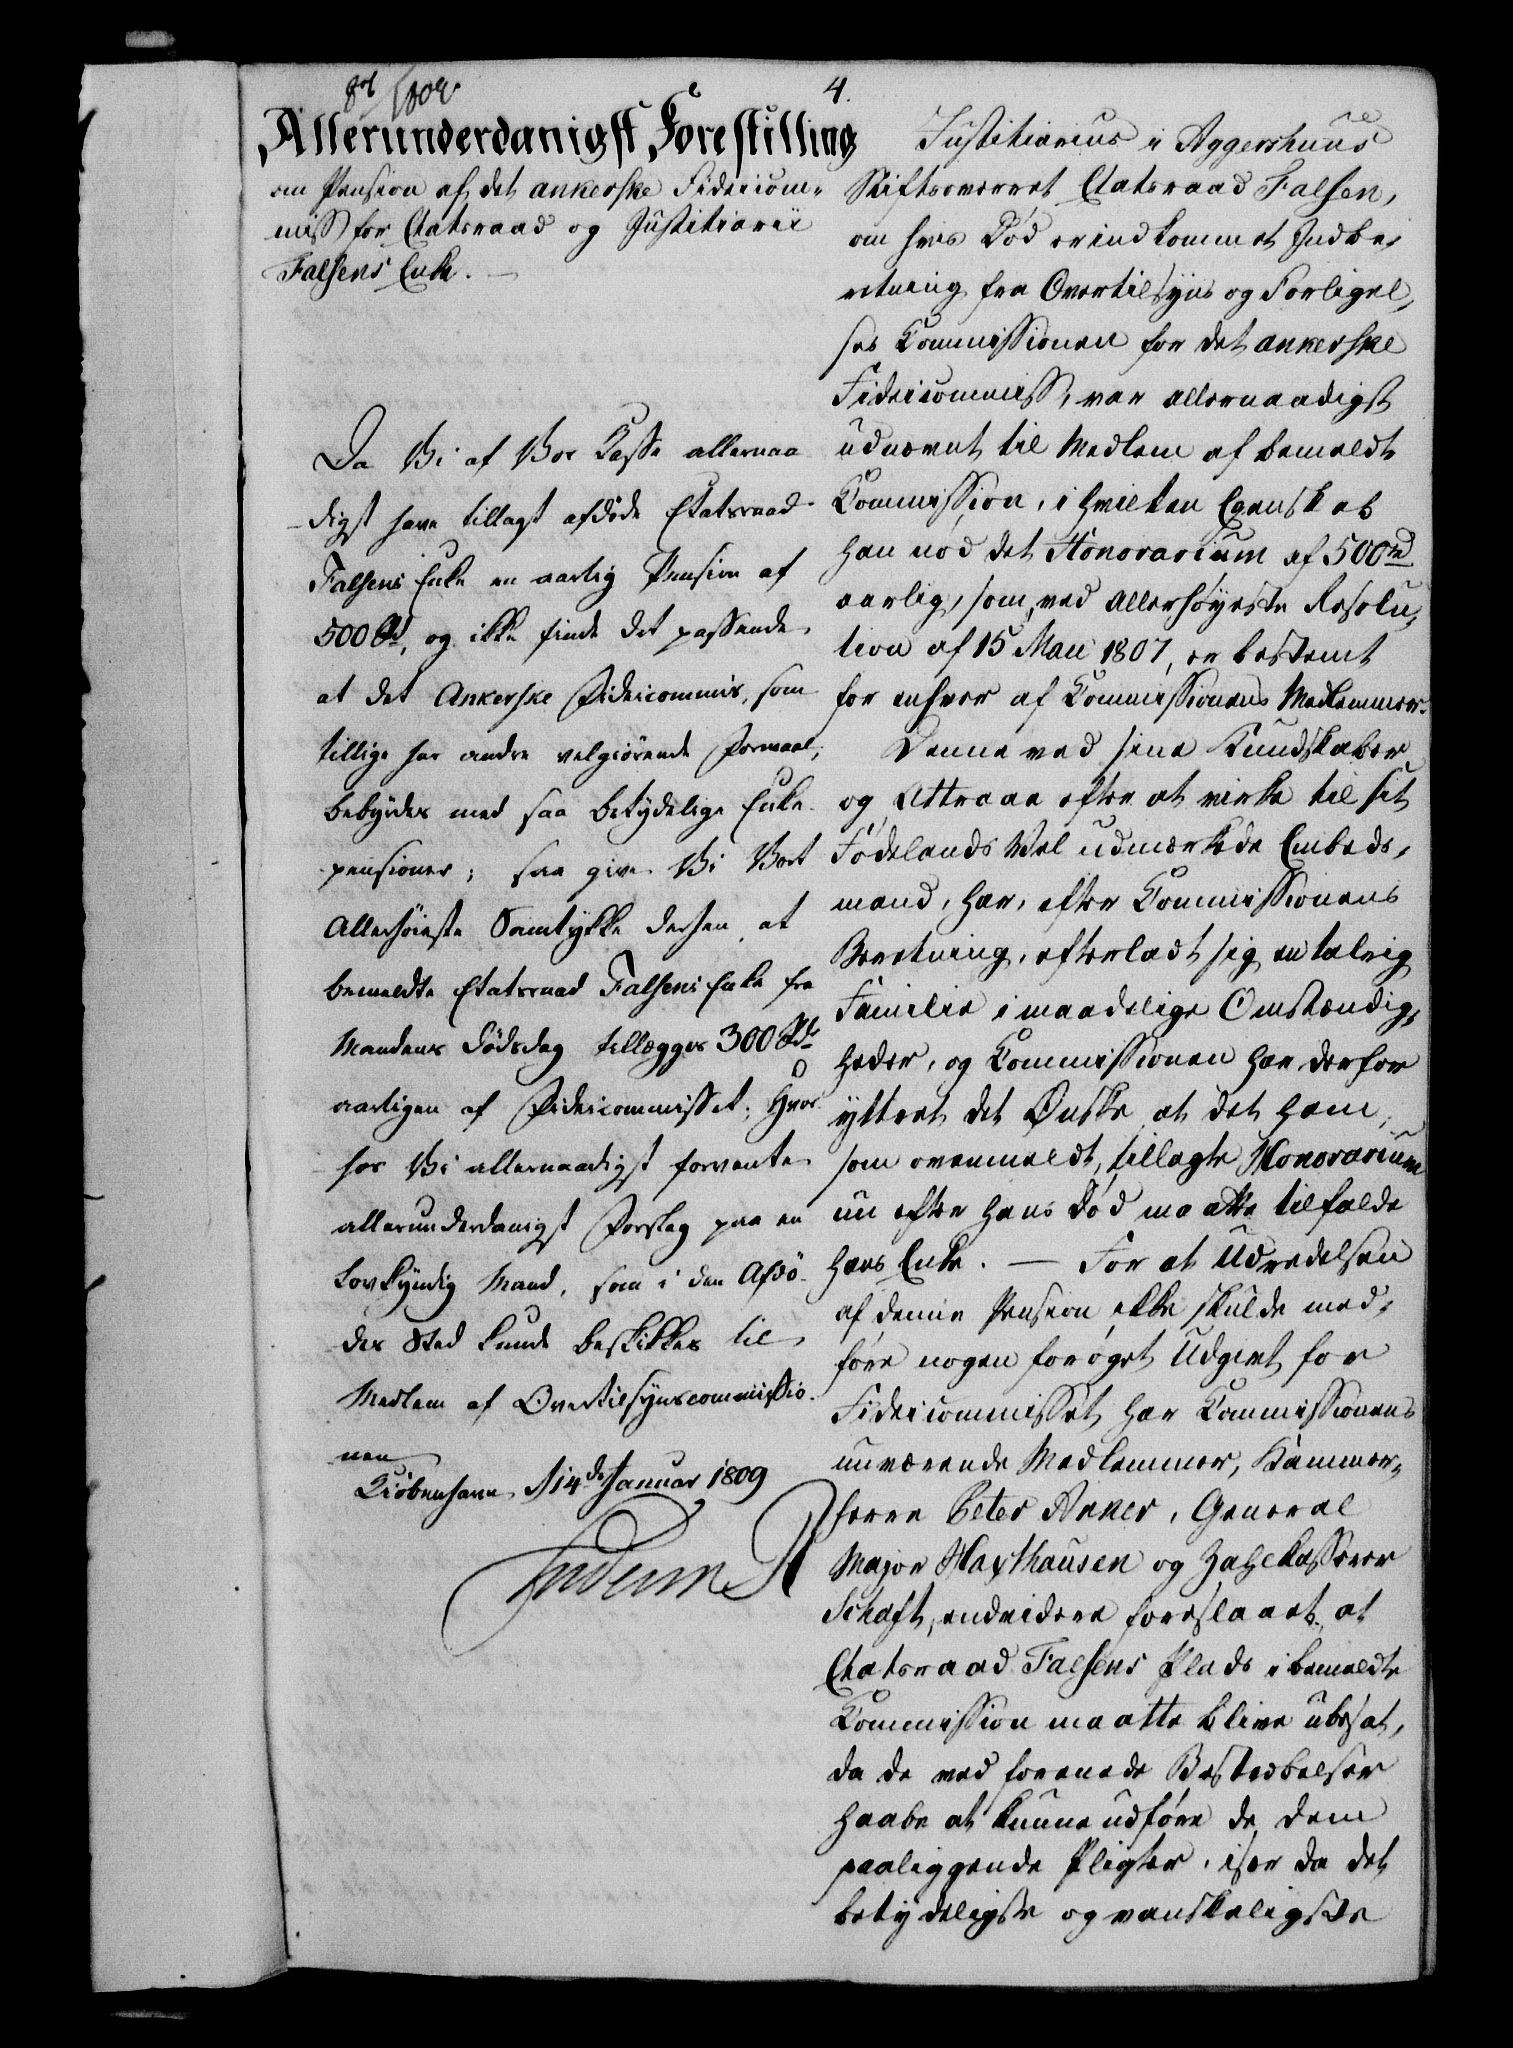 4.
1809.
Allerunderdanigst Forestilling
om Pension af det ankerske Fideicom-
miss for Etatsraad og Justitiarii
Falsens Enke. —
Da Vi af Vor Casse allernaa
digst have tillagt afdøde Etatsraad
Falsens Enke en aarlig Pension af
500 Rd, og ikke finde det passende
at det Ankerske Fideicommis, som
tillige har andre velgiørende Formaal,
bebyrdes med saa betydelige Enke-
pensioner; saa give Vi Vort
Allerhøieste Samtykke dertil, at
bemeldte Etatsraad Falsens Enke fra
Mandens Dødsdag tillægges 300 Rd
aarligen af Fideicommisset; Hvor
hos Vi allernaadigst forvente
allerunderdanigst Forslag paa en
Lovkyndig Mand, som i den Afdø-
des Sted kunde beskikkes til
Medlem af Overtilsynscommissio-
nen
Kiøbenhavn d 14de Januar 1809
Frederik R
Justitiarius i Aggershuus
Stiftsoverret Etatsraad Falsen,
om hvis Død er indkommet Indbe-
retning fra Overtilsyns og Forligel-
ses Commissionen for det ankerske
Fideicommiss, var allernaadigst
udnævnt til Medlem af bemeldt
Commission, i hvilken Egenskab
han nød det Honorarium af 500 rd
aarlig, som, ved allerhøyeste Resolu-
tion af 15 Maii 1807, er bestemt
for enhver af Commissionens Medlemmer.
Denne ved sine Kundskaber
og Attraae efter at virke til sit
Fødelands Vel udmærkede Embeds-
mand, har, efter Commissionens
Beretning, efterladt sig en talrig
Familie i maadelige Omstændig-
heder, og Commissionen har derfor
yttret det Ønske at det ham,
som ovenmeldt, tillagte Honorarium
nu efter hans Død maatte tilfalde
hans Enke. — For at Udredelsen
af denne Pension ikke skulde med-
føre nogen forøget Udgivt for
Fideicommisset har Commissionens
nuværende Medlemmer, Kammer-
herre Peter Anker, General
Major Haxthausen og Zahlkasserer
Schaft, endvidere foreslaaet, at
Etatsraad Falsens Plads i bemeldte
Commission maatte blive ubesat,
da de ved forenede Bestræbelser
haabe at kunne udføre de dem
paaliggende Pligter, især da det
betydeligste og vanskeligste